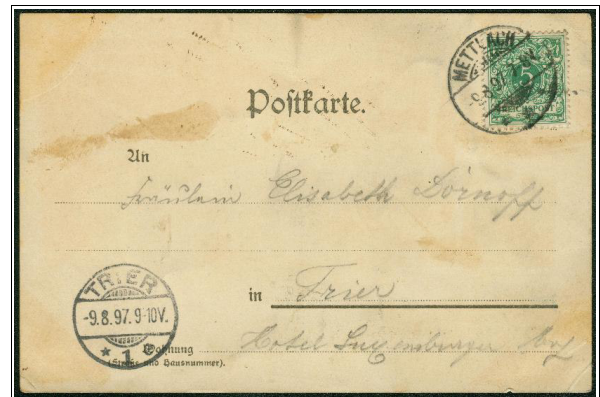 METTLACH
5
Postkarte.
An
Fräulein Elisabeth Dornoff
in Trier
TRIER
-9.8.97.9-10V.
* 1 c
Wohnung
(Straße und Hausnummer).
Hotel Luxemburger Hof